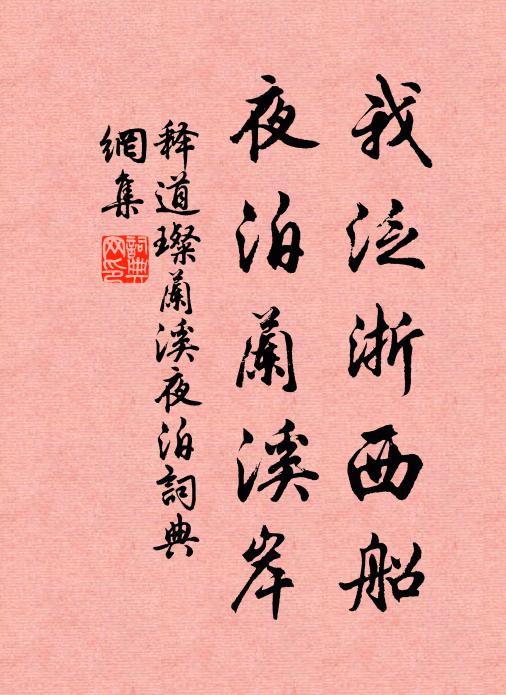 我泛浙西船
夜泊蘭溪岸
释道璨蘭溪夜泊詞典
網集
詞典
网印